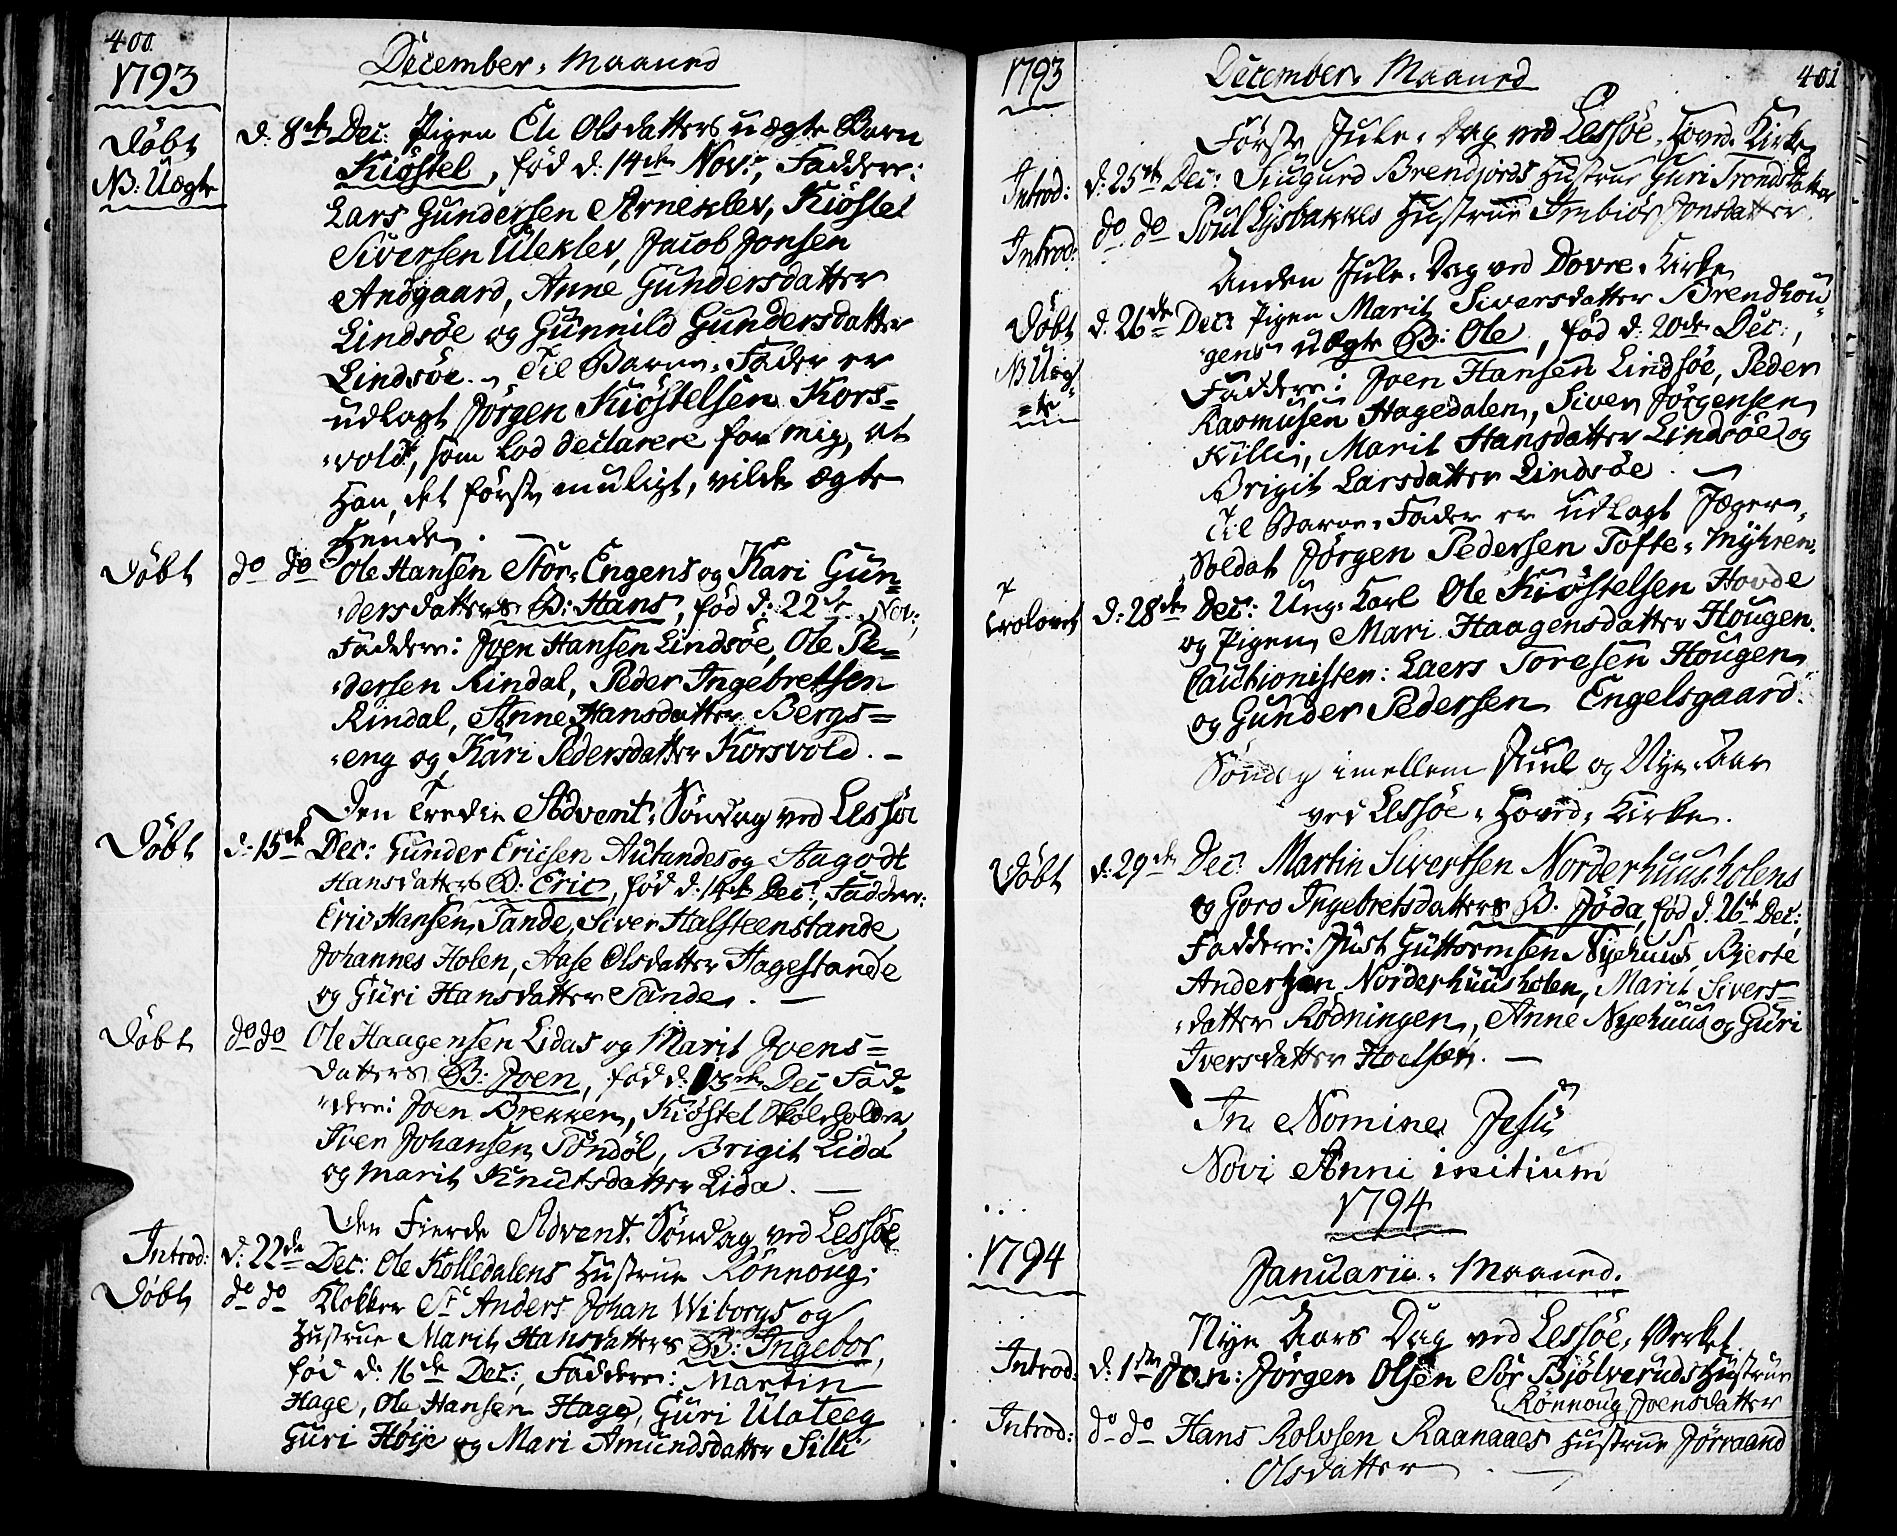 400
1793
December, Maaned
Døbt
NB: Uægte
d: 8de Dec: Pigen Eli Olsdatters uægte Barn
Kiøstel, fød d: 14de Nov:, Faddere:
Lars Gundersen Arneklev, Kiøstel
Siversen Ulekler, Jacob Jonsen
Andgaard, Anne Gundersdatter
Lindsøe og Gunnild Gundersdatter
Lindsøe. Til Barne-Fader er
udlagt Jørgen Kiøstelsen Kors=
vold, som lod declarere for mig, at
Han, det første muligt, vilde ægte
Hende.
Døbt do do Ole Hansen Stor-Engens og Kari Gun=
dersdatters B: Hans, fød d: 22de Nov:,
Faddere: Joen Hansen Lindsøe, Ole Pe=
dersen Rindal, Peder Ingebretsen
Rindal, Anne Hansdatter Bergs=
eng og Kari Pedersdatter Korsvold. –
Den Tredie Advent, Søndag ved Lessøe
Døbt d: 15de Dec: Gunder Ericsen Autandes og Aagodt
Hansdatters B: Eric, fød d: 14de Dec:, Faddere:
Eric Hansen Tande, Siver Halsteenstande
Johannes Holen, Aase Olsdatter Hagestande
og Guri Hansdatter Tande. –
Døbt do do Ole Haagensen Lidas og Marit Joens=
datters B: Joen, fød d: 13de Dec Fad=
dere: Joen Brekken, Kiøstel Skoleholder,
Iver Johansen Tøndøl, Brigit Lida
og Marit Knutsdatter Lida. –
Den Fierde Advent, Søndag ved Lessøe
Introd: d: 22de Dec: Ole Kolledalens Hustrue Rønnoug.
Døbt do do Klokker Sr Anders Johan Wiborgs og
Hustrue Marit Hansdatters B: Ingebor,
fød d: 16de Dec:, Faddere: Martin
Hage, Ole Hansen Hage, Guri Ulateeg
Guri Høye og Mari Amundsdatter Silli
1793
December, Maaned
401
Første Jule-Dag ved Lessøe, Hoved-Kirke
Introd: d: 25de Dec: Siugurd Brendjords Hustrue Guri Trondsdatter
Introd: do do Poul Lysbakkes Hustrue Imbiør Jonsdatter.
Anden Jule-Dag ved Dovre-Kirke
Døbt d: 26de Dec: Pigen Marit Siversdatter Brendhou=
NB Uæg=
te
gens uægte B: Ole, fød d: 20de Dec:,
Faddere: Joen Hansen Lindsøe, Peder
Rasmusen Hagedalen, Siver Jørgensen
Killi, Marit Hansdatter Lindsøe og
Brigit Larsdatter Lindsøe. –
Til Barne-Fader er udlagt Jæger-
Soldat Jørgen Pedersen Tofte-Myhren.
Trolovet d: 28de Dec: Ung-Karl Ole Kiøstelsen Hovde
og Pigen Mari Haagensdatter Hougen.
Cautionister: Laers Toresen Hougen
og Gunder Pedersen Engelsgaard.
Søndag imellem Juul og Nye-Aar
ved Lessøe-Hoved-Kirke.
Døbt d: 29de Dec: Martin Sivertsen Norderhuusholens
og Goro Ingebretsdatters B. Jøda, fød d. 26de Dec:,
Faddere: Just Guttormsen Nyehuus, Bjerte
Andersen Norderhuusholen, Marit Sivers=
datter Rødningen, Anne Nyehuus og Guri
Iversdatter Hoelsøe. –
In Nomine Jesu
Novi Anni initium
1794
1794
Januarii-Maaned.
Nye Aars Dag ved Lessøe-Verket
Introd: d: 1ste Jan: Jørgen Olsen Sør Bjølveruds Hustrue
Rønnoug Joensdatter
Introd: do do Hans Rolvsen Raanaaes Hustrue Jørraand
Olsdatter –